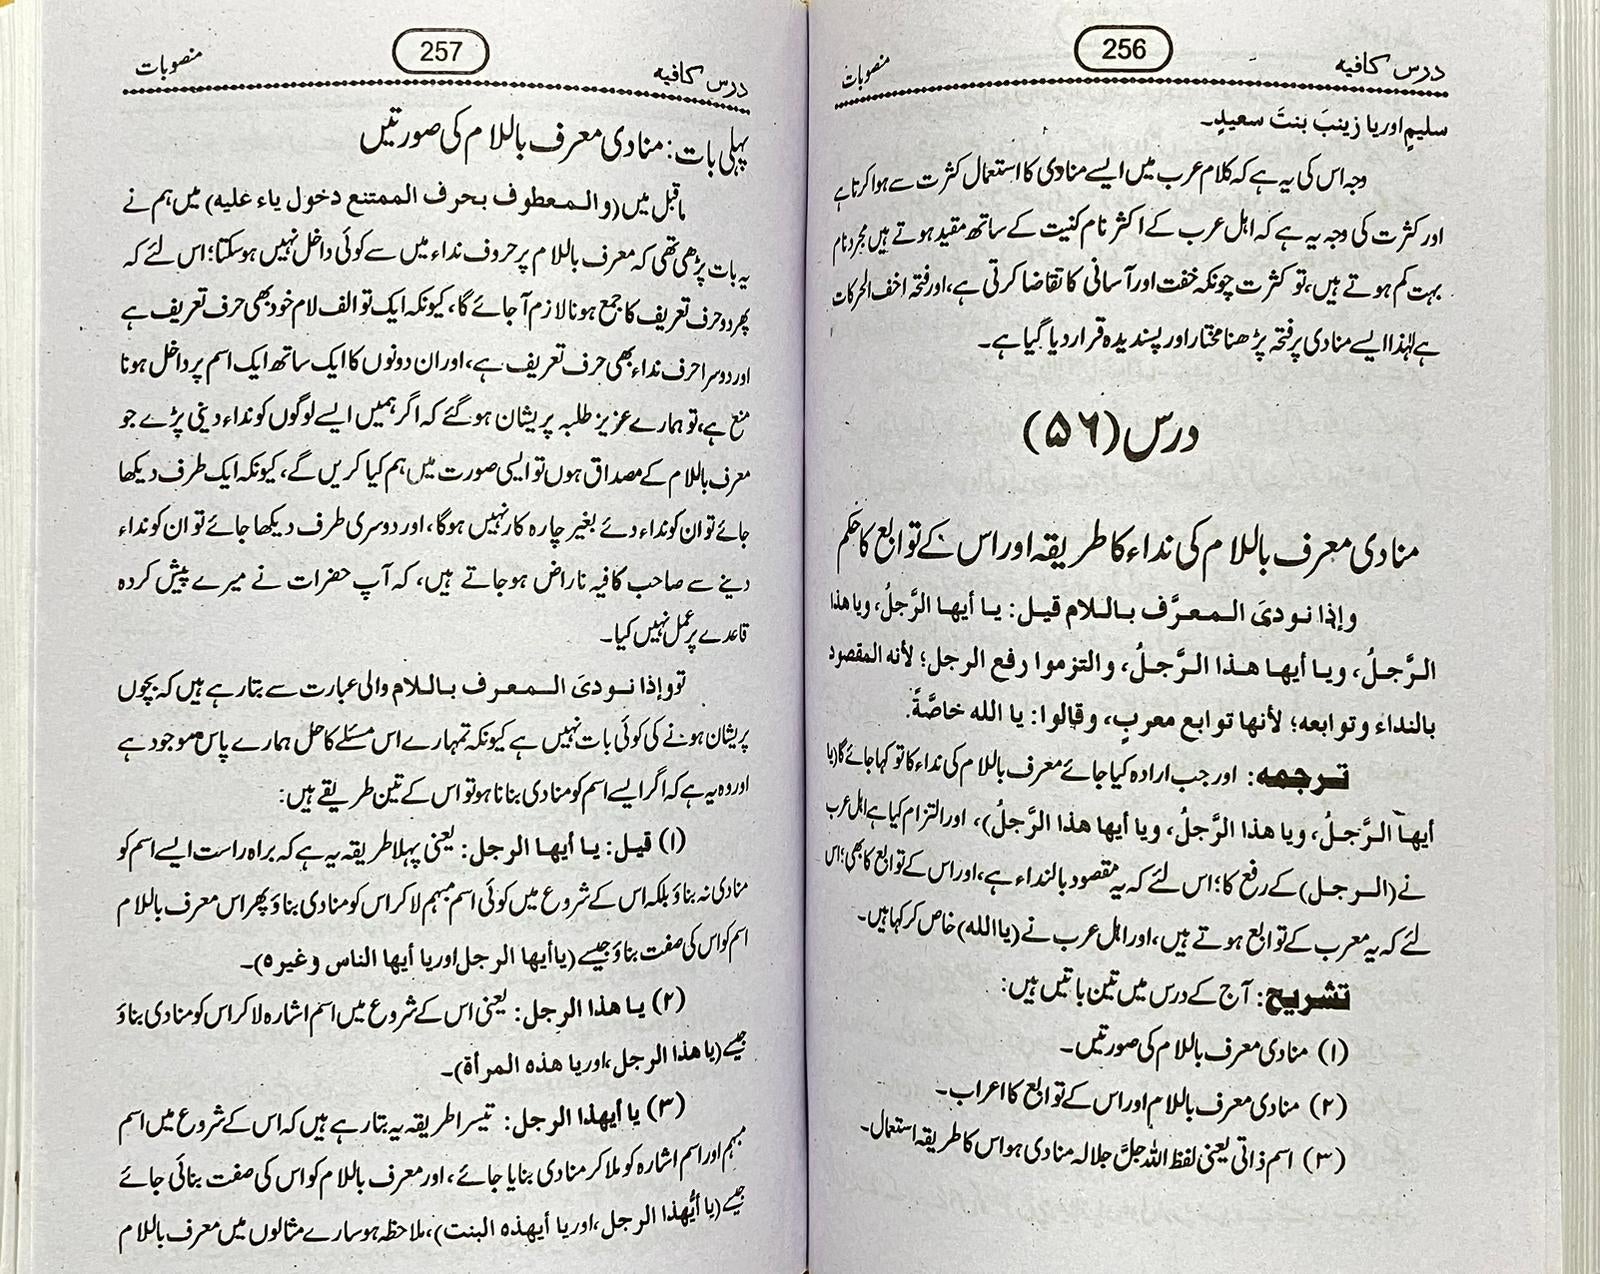 درس کافیه
256
منصوبات
سلیمٍ اور یا زینبَ بنتَ سعیدٍ۔
وجہ اس کی یہ ہے کہ کلام عرب میں ایسے منادی کا استعمال کثرت سے ہوا کرتا ہے
اور کثرت کی وجہ یہ ہے کہ اہل عرب کے اکثر نام کنیت کے ساتھ مقید ہوتے ہیں مجرد نام
بہت کم ہوتے ہیں، تو کثرت چونکہ خفت اور آسانی کا تقاضا کرتی ہے، اور فتحہ اخف الحرکات
ہے لہٰذا ایسے منادی پر فتحہ پڑھنا مختار اور پسندیدہ قرار دیا گیا ہے۔
درس (۵۶)
منادی معرف باللام کی نداء کا طریقہ اور اس کے توابع کا حکم
وإذا نودیَ المعرَّف باللام قیل: یا أیها الرَّجلُ، ویا هذا
الرَّجلُ، ویا أیها هذا الرَّجلُ، والتزموا رفع الرجل؛ لأنه المقصود
بالنداء وتوابعه؛ لأنها توابع معربٍ، وقالوا: یا الله خاصَّةً.
ترجمه: اور جب ارادہ کیا جائے معرف باللام کی نداء کا تو کہا جائے گا (یا
أیها الرَّجلُ، ویا هذا الرَّجلُ، ویا أیها هذا الرَّجلُ)، اور التزام کیا ہے اہل عرب
نے (الرجل) کے رفع کا؛ اس لئے کہ یہ مقصود بالنداء ہے، اور اس کے توابع کا بھی؛ اس
لئے کہ یہ معرب کے توابع ہوتے ہیں، اور اہل عرب نے (یا الله) خاص کر کہا ہیں۔
تشریح: آج کے درس میں تین باتیں ہیں:
(۱) منادی معرف باللام کی صورتیں۔
(۲) منادی معرف باللام اور اس کے توابع کا اعراب۔
(۳) اسم ذاتی یعنی لفظ اللہ جلَّ جلالہ منادی ہو اس کا طریقہ استعمال۔
درس کافیه
257
منصوبات
پہلی بات: منادی معرف باللام کی صورتیں
ماقبل میں (والمعطوف بحرف الممتنع دخول یاء علیه) میں ہم نے
یہ بات پڑھی تھی کہ معرف باللام پر حروف نداء میں سے کوئی داخل نہیں ہوسکتا؛ اس لئے کہ
پھر دو حرف تعریف کا جمع ہونا لازم آ جائے گا، کیونکہ ایک تو الف لام خود بھی حرف تعریف ہے
اور دوسرا حرف نداء بھی حرف تعریف ہے، اور ان دونوں کا ایک ساتھ ایک اسم پر داخل ہونا
منع ہے، تو ہمارے عزیز طلبہ پریشان ہو گئے کہ اگر ہمیں ایسے لوگوں کو نداء دینی پڑے جو
معرف باللام کے مصداق ہوں تو ایسی صورت میں ہم کیا کریں گے، کیونکہ ایک طرف دیکھا
جائے تو ان کو نداء دئے بغیر چارہ کار نہیں ہوگا، اور دوسری طرف دیکھا جائے تو ان کو نداء
دینے سے صاحب کافیہ ناراض ہو جاتے ہیں، کہ آپ حضرات نے میرے پیش کردہ
قاعدے پر عمل نہیں کیا۔
تو وإذا نودیَ المعرف باللام والی عبارت سے بتا رہے ہیں کہ بچوں
پریشان ہونے کی کوئی بات نہیں ہے کیونکہ تمہارے اس مسئلے کا حل ہمارے پاس موجود ہے
اور وہ یہ ہے کہ اگر ایسے اسم کو منادی بنانا ہو تو اس کے تین طریقے ہیں:
(۱) قیل: یا أیها الرجل: یعنی پہلا طریقہ یہ ہے کہ براہ راست ایسے اسم کو
منادی نہ بناؤ بلکہ اس کے شروع میں کوئی اسم مبہم لا کر اس کو منادی بناؤ پھر اس معرف باللام
اسم کو اس کی صفت بناؤ جیسے (یا أیها الرجل اور یا أیها الناس وغیرہ)۔
(۲) یا هذا الرجل: یعنی اس کے شروع میں اسم اشارہ لا کر اس کو منادی بناؤ
جیسے (یا هذا الرجل، اور یا هذه المرأة)۔
(۳) یا أیهذا الرجل: تیسرا طریقہ یہ بتا رہے ہیں کہ اس کے شروع میں اسم
مبہم اور اسم اشارہ کو ملا کر منادی بنایا جائے، اور معرف باللام کو اس کی صفت بنائی جائے
جیسے (یا أیُّهذا الرجل، اور یا أیهذه البنت)، ملاحظہ ہو سارے مثالوں میں معرف باللام